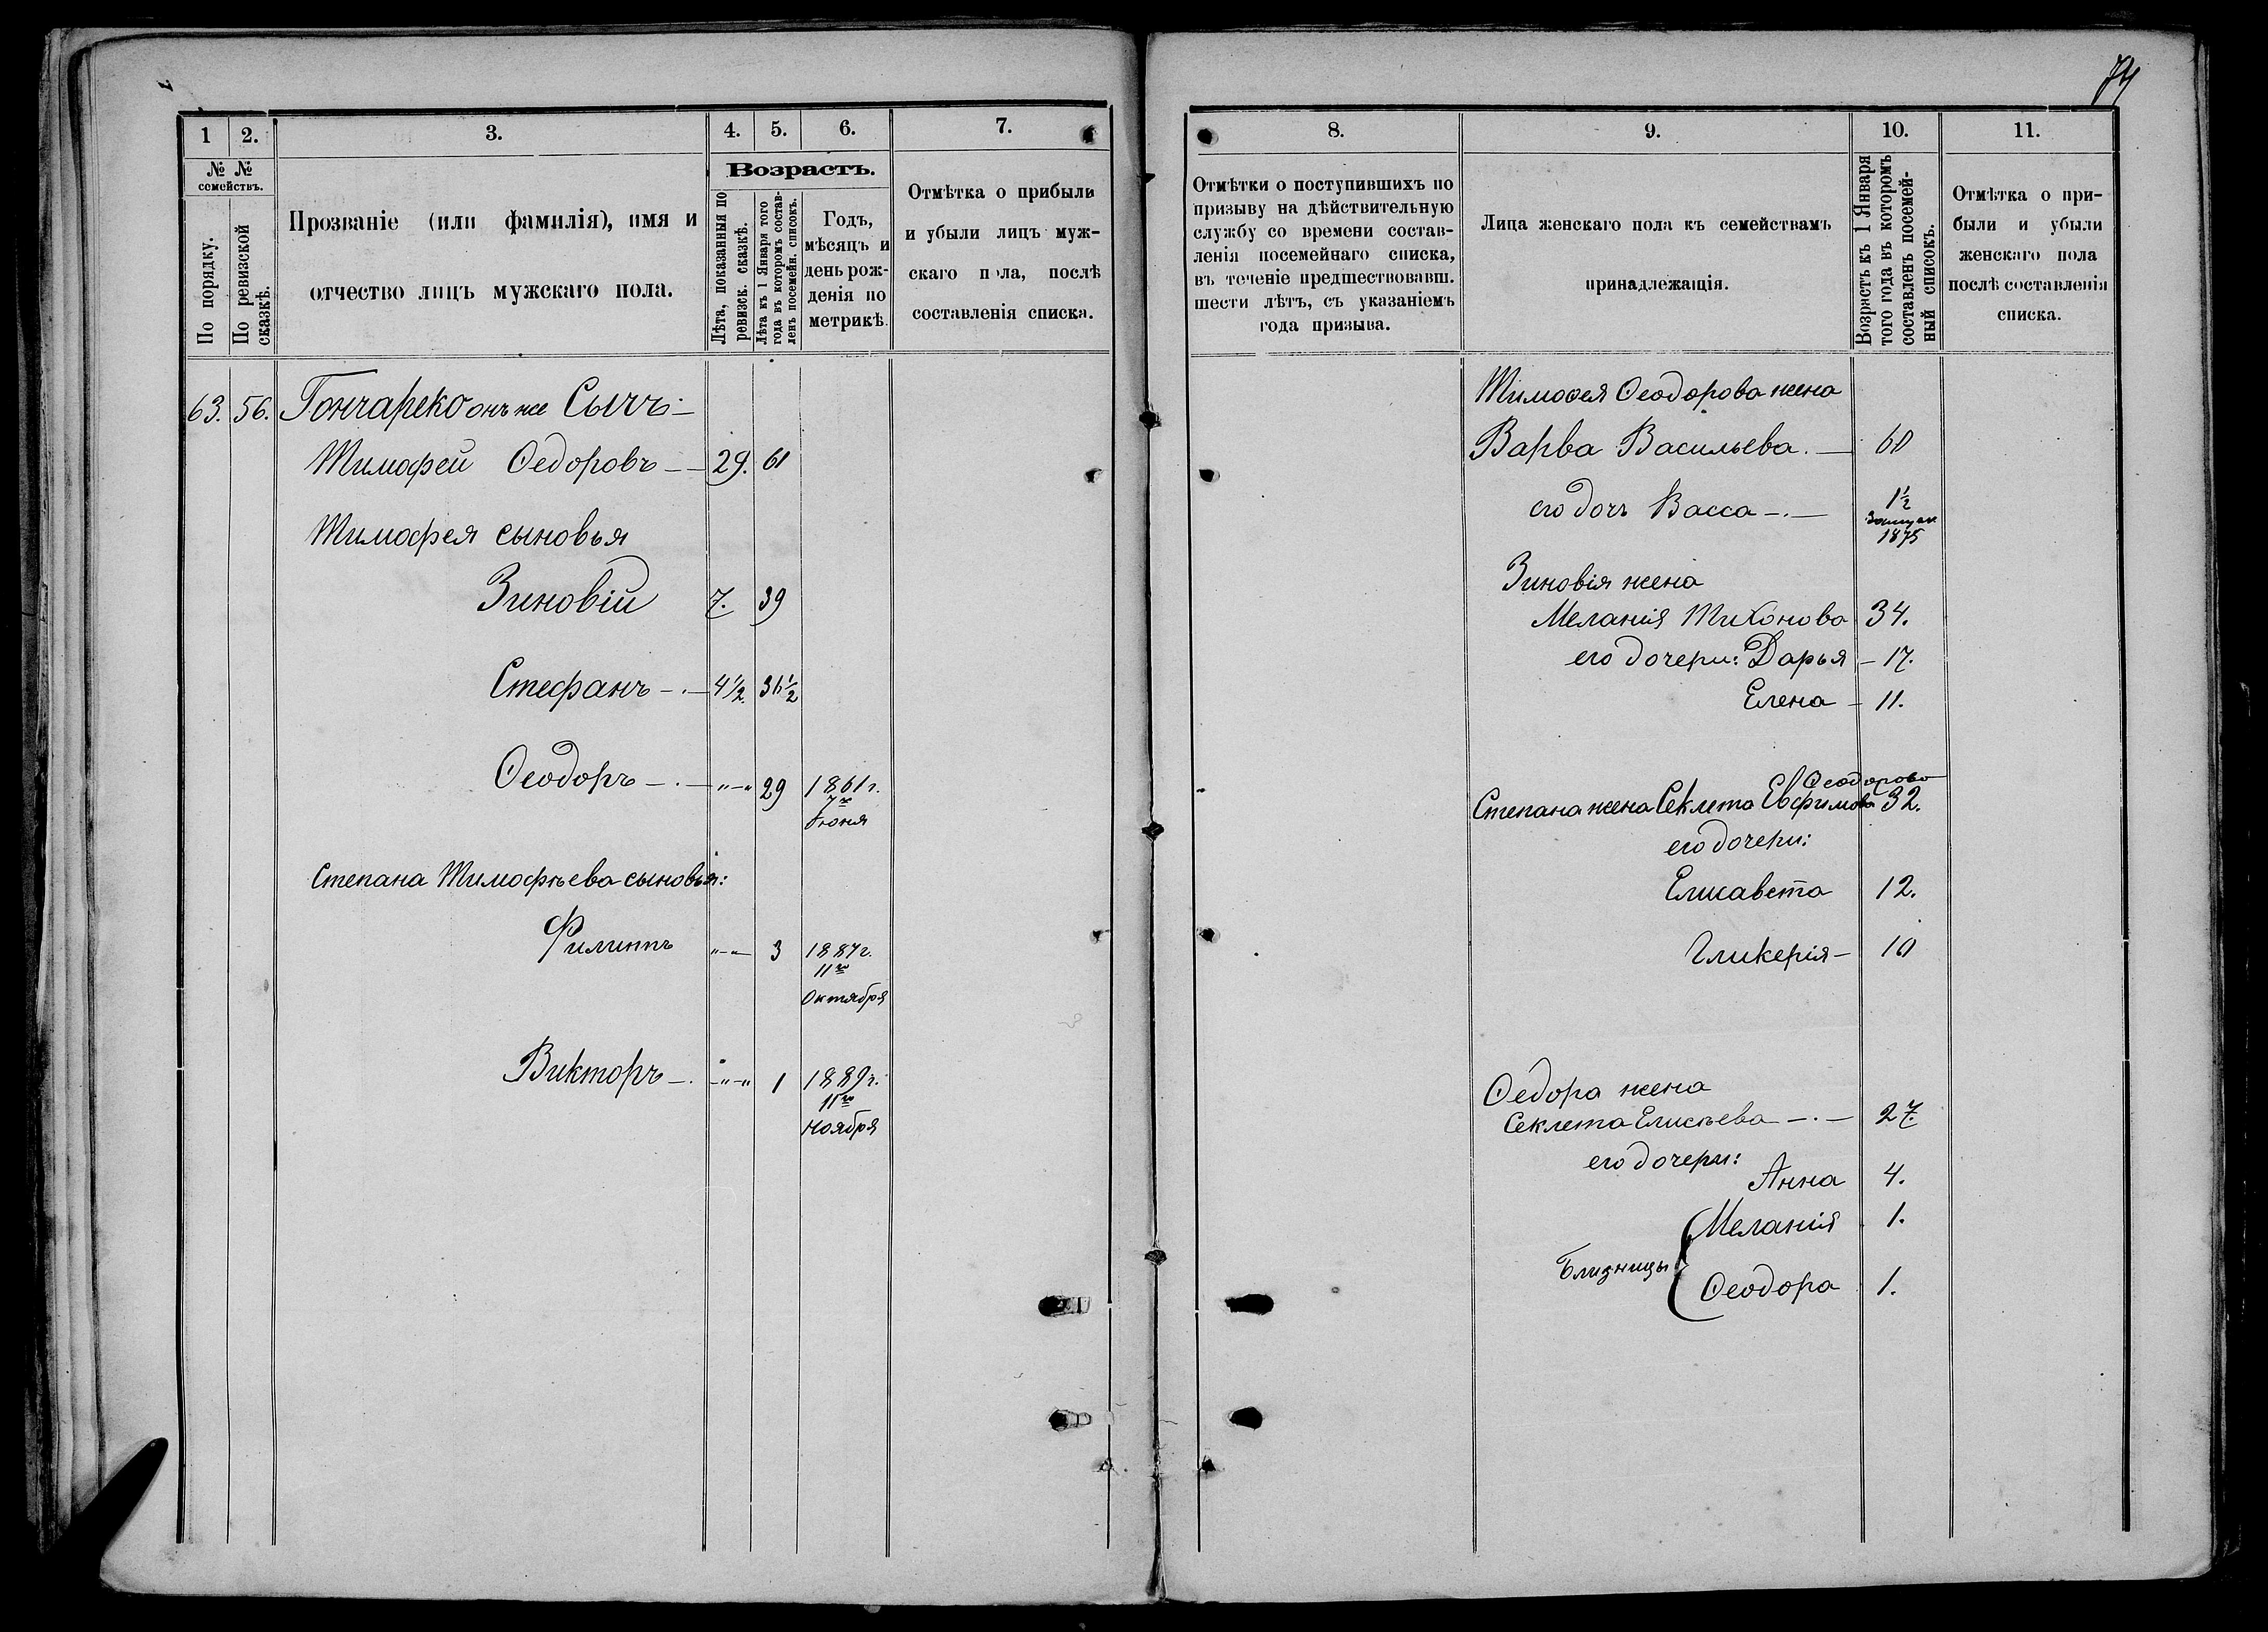 74
1
2.
3.
4.
5.
6.
7.
№ №
семействъ.
По порядку.
По ревизской сказкѣ.
Прозваніе (или фамилія), имя и
отчество лицъ мужскаго пола.
Возрастъ.
Лѣта, показанныя по ревизск. сказкѣ.
Лѣта къ 1 Января того года въ которомъ составленъ посемейн. списокъ.
Годъ,
мѣсяцъ и
день рож-
денія по
метрикѣ.
Отмѣтка о прибыли
и убыли лицъ муж-
скаго пола, послѣ
составленія списка.
63. 56. Гончареко онъ же Сычъ –
Тимофей Ѳедоровъ – – 29. 61
Тимофея сыновья
Зиновій 7. 39
Стефанъ – . – 4 1/2. 36 1/2
Ѳеодоръ – . – „ – „ 29 1861 г.
7го
Июня
Степана Тимофѣева сыновья:
Филиппъ „ – „ – 3 1887 г.
11го
Октября
Викторъ – . – „ – „ 1 1889 г.
11го
Ноября
8.
9.
10.
11.
Отмѣтки о поступившихъ по
призыву на дѣйствительную
службу со времени состав-
ленія посемейнаго списка,
въ теченіе предшествовавш.
шести лѣтъ, съ указаніемъ
года призыва.
Лица женскаго пола къ семействамъ
принадлежащія.
Возрастъ къ 1 Января
того года въ которомъ
составленъ посемей-
ный списокъ.
Отмѣтка о при-
были и убыли
женскаго пола
послѣ составленія
списка.
Тимоѳея Ѳеодорова жена
Варва Васильева . — 60
его дочь Васса – . — 1 1/2
1875
Зиновія жена
Меланія Тихонова 34.
его дочери: Дарья – 17.
Елена – 11.
Ѳеодорова
Степана жена Секлета Евфимова 32.
его дочери:
Елисавета 12.
Гликерія – 10
Ѳедора жена
Секлета Елисѣева – . – 27.
его дочери:
Анна 4.
Меланія 1.
Близницы
Ѳеодора 1.